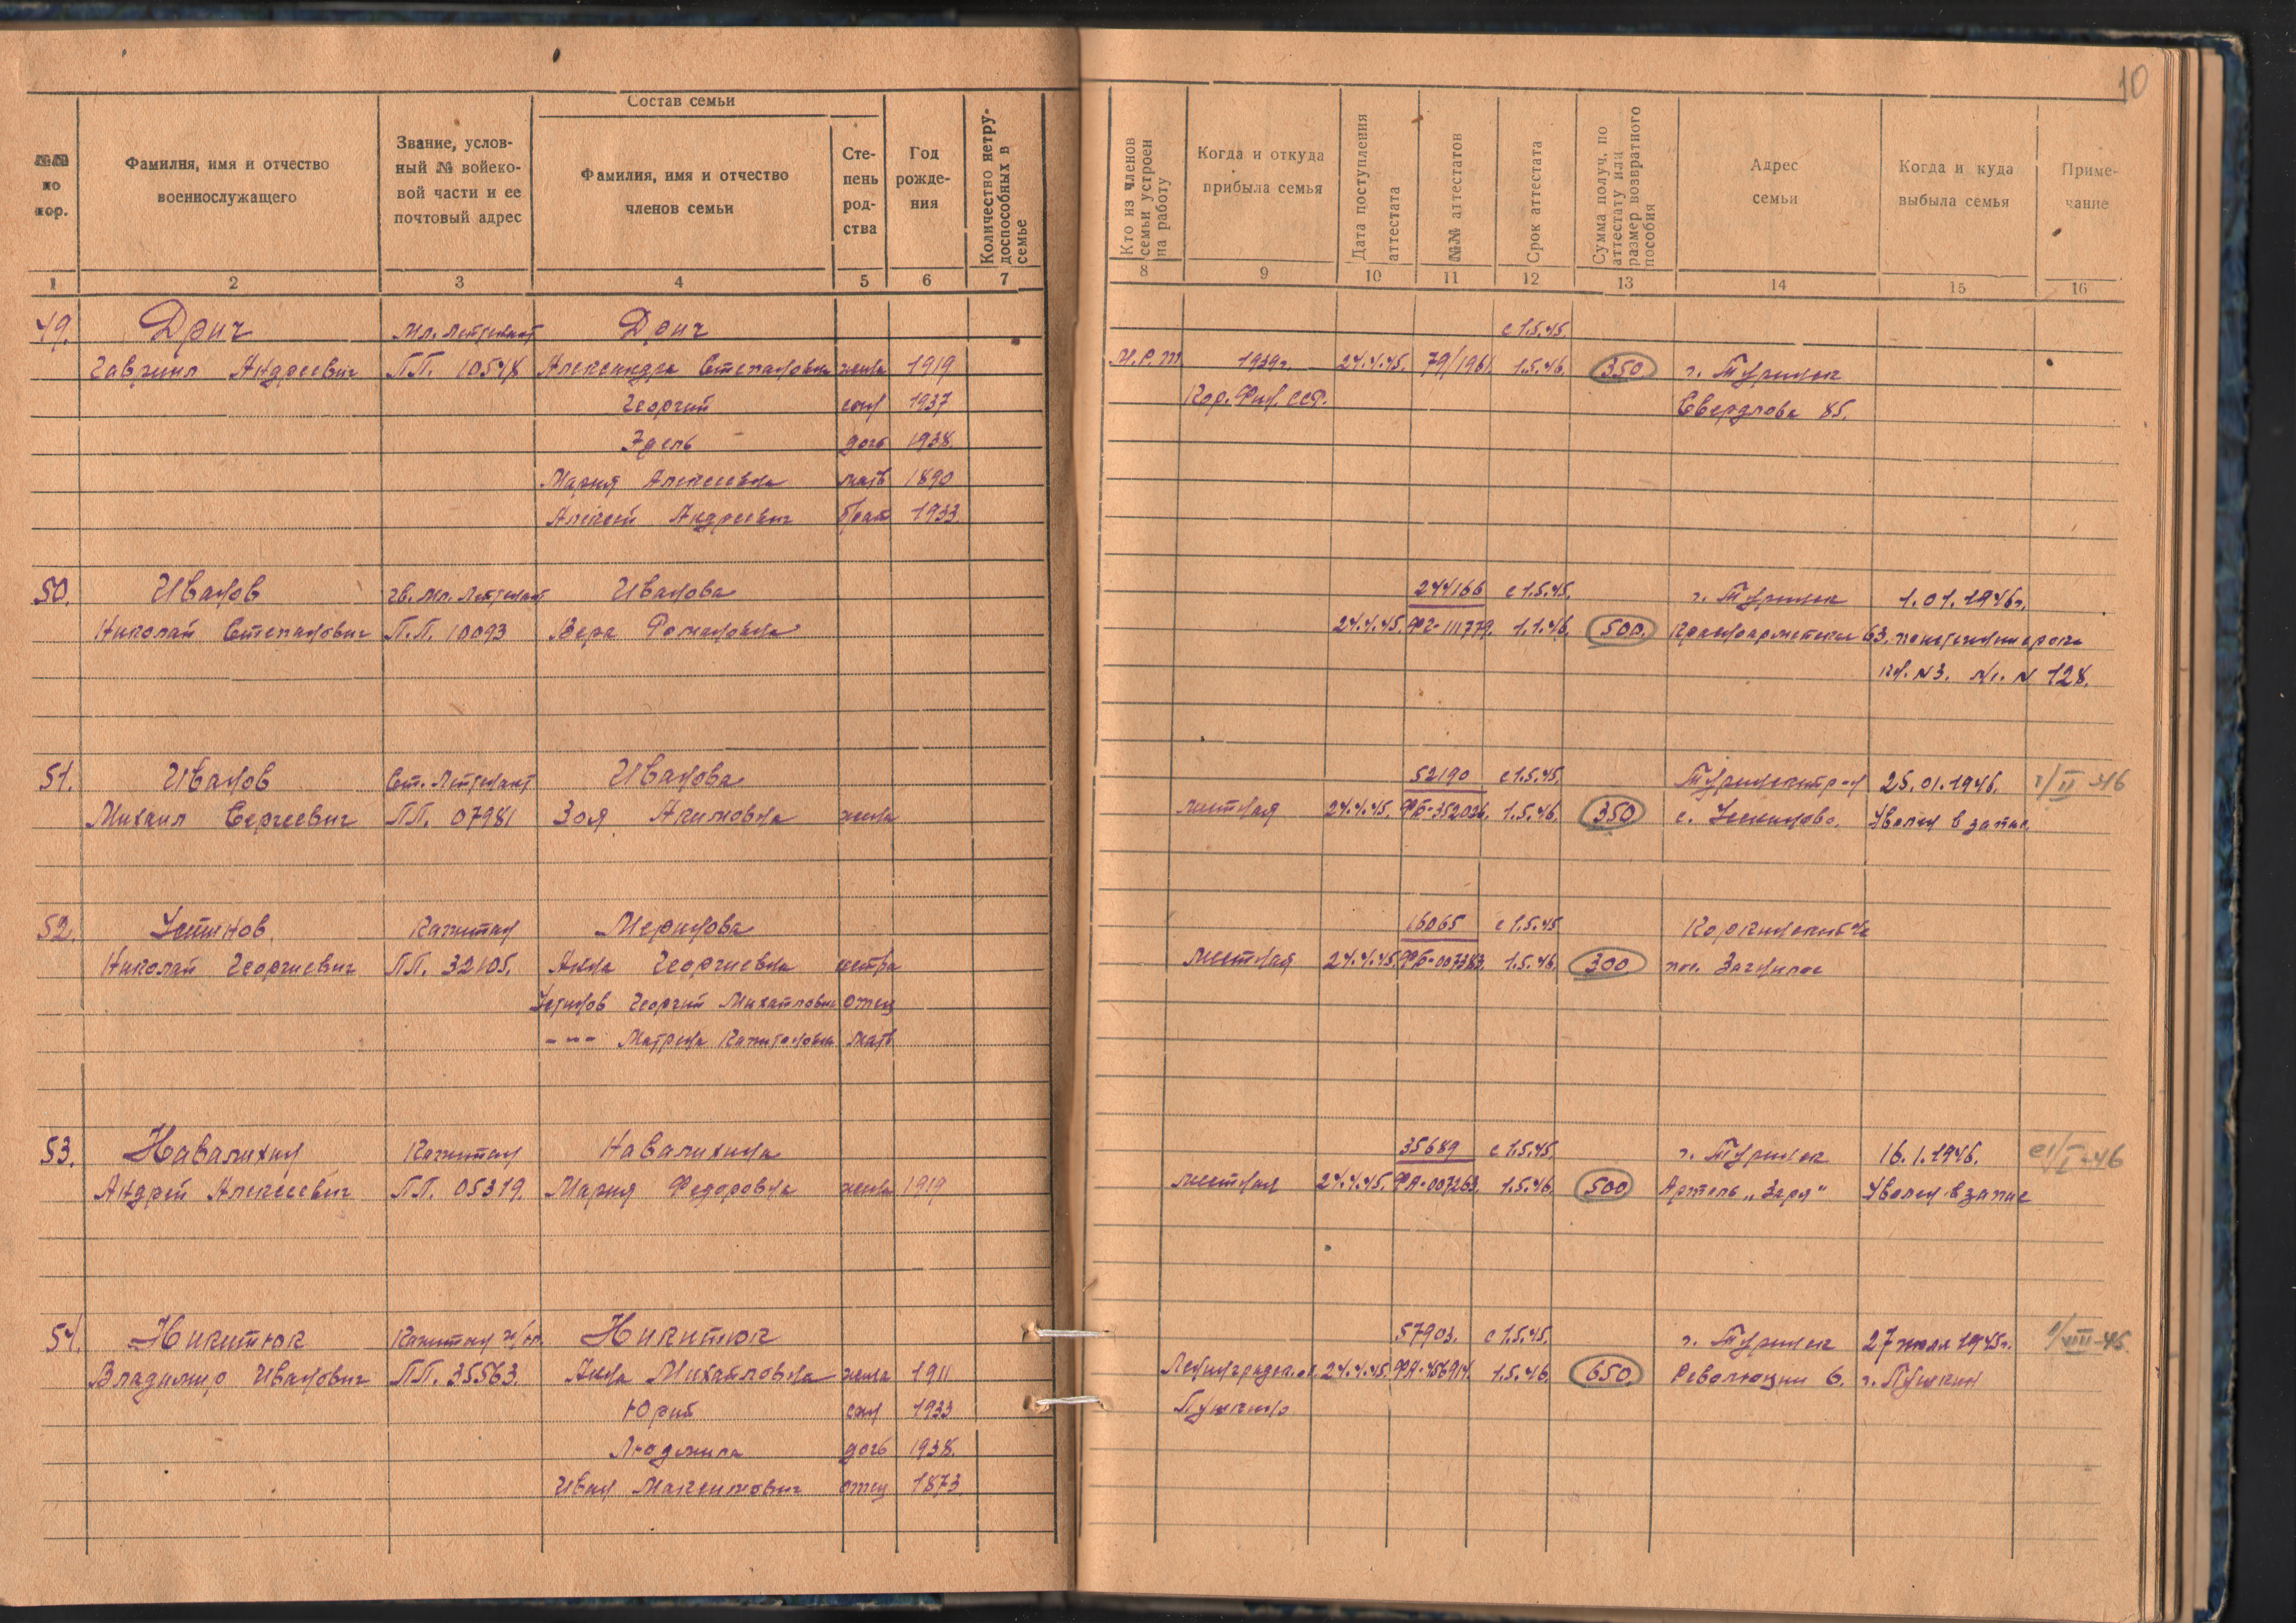 10
Состав семьи
№№ по пор.
Фамилия, имя и отчество военнослужащего
Звание, услов-
ный № войско-
вой части и ее
почтовый адрес
Фамилия, имя и отчество
членов семьи
Сте-
пень
род-
ства
Год
рожде-
ния
Количество нетру-
доспособных в
семье
Кто из членов
семьи устроен
на работу
Когда и откуда
прибыла семья
Дата поступления
аттестата
№№ аттестатов
Срок аттестата
Сумма получ. по
аттестату или
размер возвратного
пособия
Адрес
семьи
Когда и куда
выбыла семья
Приме-
чание
1 2 3 4 5 6 7 8 9 10 11 12 13 14 15 16
49. Дрич Мл. Лейтенант Дрич с 1.5.45.
Гавриил Андреевич П.П. 10548 Александра Степановна жена 1919 1939г. 24.4.45. 79/1961 1.5.46. 350 г. Туринск
Георгий сын 1937 Кар. Фин. ССР. Свердлова 85.
Эдель дочь 1938.
Мария Алексеевна мать 1890
Алексей Андреевич брат 1933
50. Иванов Гв. мл. Лейтенант Иванова 244166 с 1.5.45. г. Туринск 1.01.1946г.
Николай Степанович П.П. 10093 Вера Романовна 24.4.45. ФГ-111779. 1.1.46. 500. Красноармейская 63.
кв. N3. N 128.
51. Иванов Ст. Лейтенант Иванова 52190 с 1.5.45. Туринский р-н 25.01.1946. 1/II-46
Михаил Сергеевич П.П. 07981 Зоя Акимовна жена местная 24.4.45. ФБ-352026. 1.5.46. 350 с. Усениново. Уволен в запас
52. Устинов Капитан Меринова 16065 с 1.5.45
Николай Георгиевич П.П. 32105. Анна Георгиевна сестра местная 24.4.45. ФБ-007383. 1.5.46. 300
Устинов Георгий Михайлович отец
-"- Матрена Капитоновна мать
53. Навалихин Капитан Навалихина 35689 с 1.5.45. г. Туринск 16.1.1946. с 1/I-46
Андрей Алексеевич П.П. 05319. Мария Федоровна жена 1919 местная 24.4.45. ФА-007263. 1.5.46. 500 Артель „Заря" Уволен в запас
54. Никитюк Капитан Никитюк 57903. с 1.5.45. г. Туринск 27 июля 1945г. 1/VIII-45
Владимир Иванович П.П. 35563. Анна Михайловна жена 1911 24.4.45. ФА-456914. 1.5.46. 650. Революции 6. г. Пушкин
Юрий сын 1933 Пушкино
Людмила дочь 1938.
Иван Максимович отец 1873